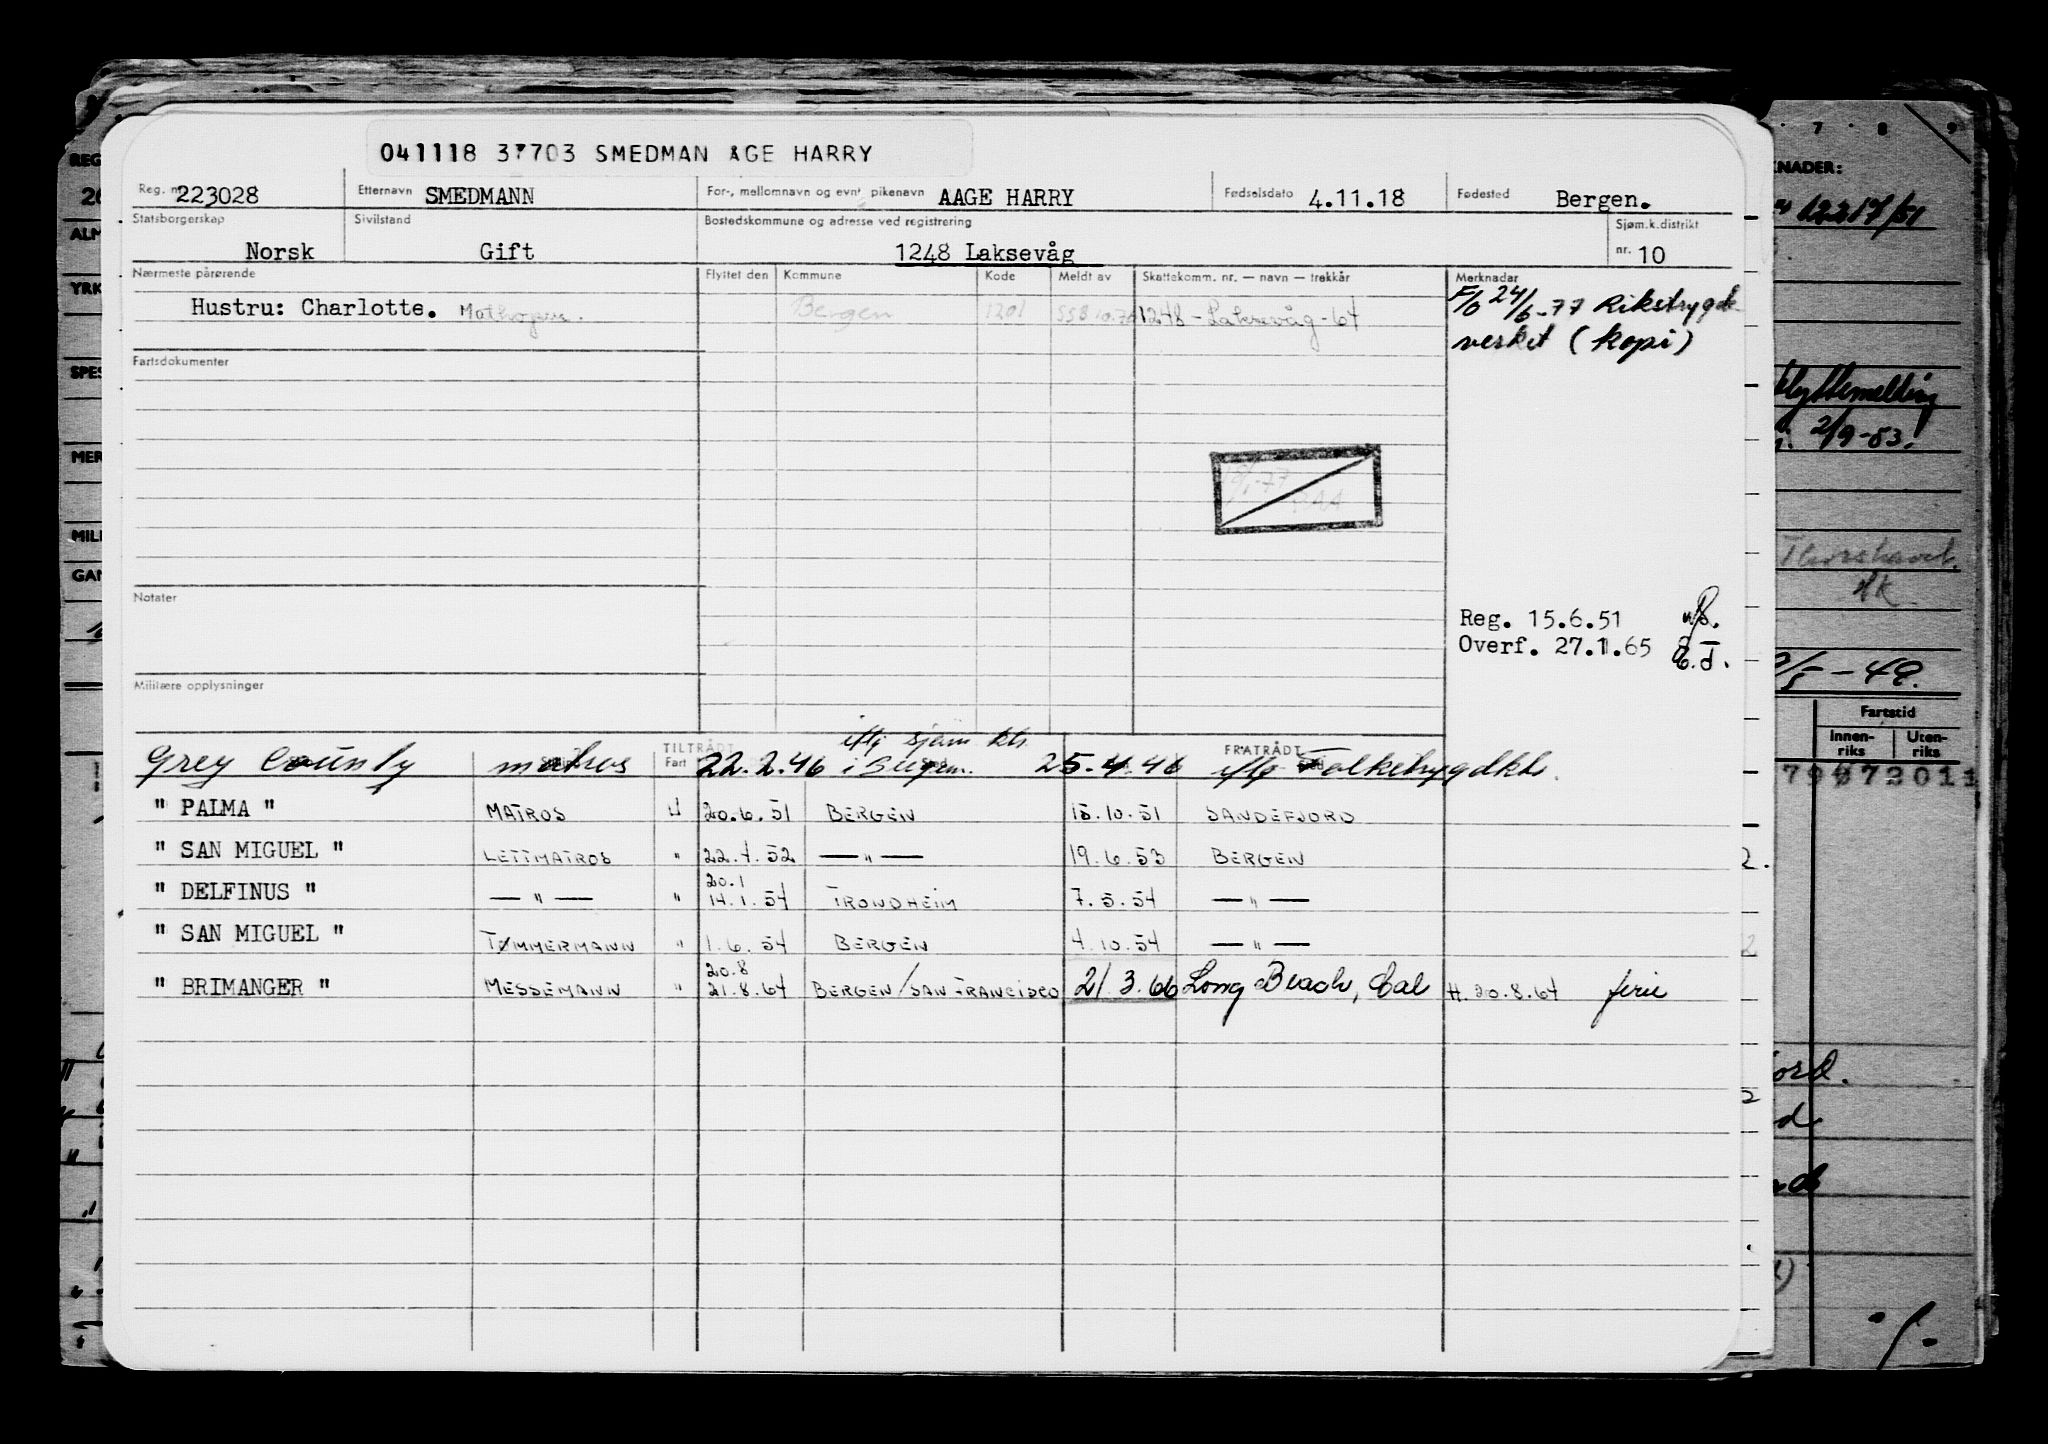 041118 37703 SMEDMAN ÅGE HARRY
Reg. nr. 223028 Etternavn SMEDMANN For-, mellomnavn og evnt. pikenavn AAGE HARRY Fødselsdato 4.11.18 Fødested Bergen.
Statsborgerskap Norsk Sivilstand Gift Bostedskommune og adresse ved registrering 1248 Laksevåg Sjøm.k.distrikt nr. 10
Nærmeste pårørende Flyttet den Kommune Kode Meldt av Skattekomm. nr. — navn — trekkår Merknader
Hustru: Charlotte. Mathopen. Bergen 1201 SSB 10.76 1248 - Laksevåg - 64 F/O 24/6-77 Rikstrygde-
verket (kopi)
Fartsdokumenter
Notater
Reg. 15.6.51
Overf. 27.1.65
Militære opplysninger
TILTRÅDT FRATRÅDT
Fart
iflg sjøm ktr.
Grey County matros 22.2.46 i Bergen. 25.4.46 iflg Folketrygdktr.
" PALMA " MATROS U 20.6.51 BERGEN 15.10.51 SANDEFJORD
" SAN MIGUEL " LETTMATROS " 22.4.52 — " — 19.6.53 BERGEN
" DELFINUS " — " — " 20.1 14.1.54 TRONDHEIM 7.5.54 — " —
" SAN MIGUEL " TØMMERMANN " 1.6.54 BERGEN 4.10.54 — " —
" BRIMANGER " MESSEMANN " 20.8 21.8.64 BERGEN/SAN FRANCISCO 21.3.66 Long Beach, Cal H. 20.8.64 ferie
REG
ALM
YRK
SPES
MER
MILI
GAN
7 8 9
KNADER:
12217/51
2/9-53.
Thorshavet
Fartstid
Innen-
riks
Uten-
riks